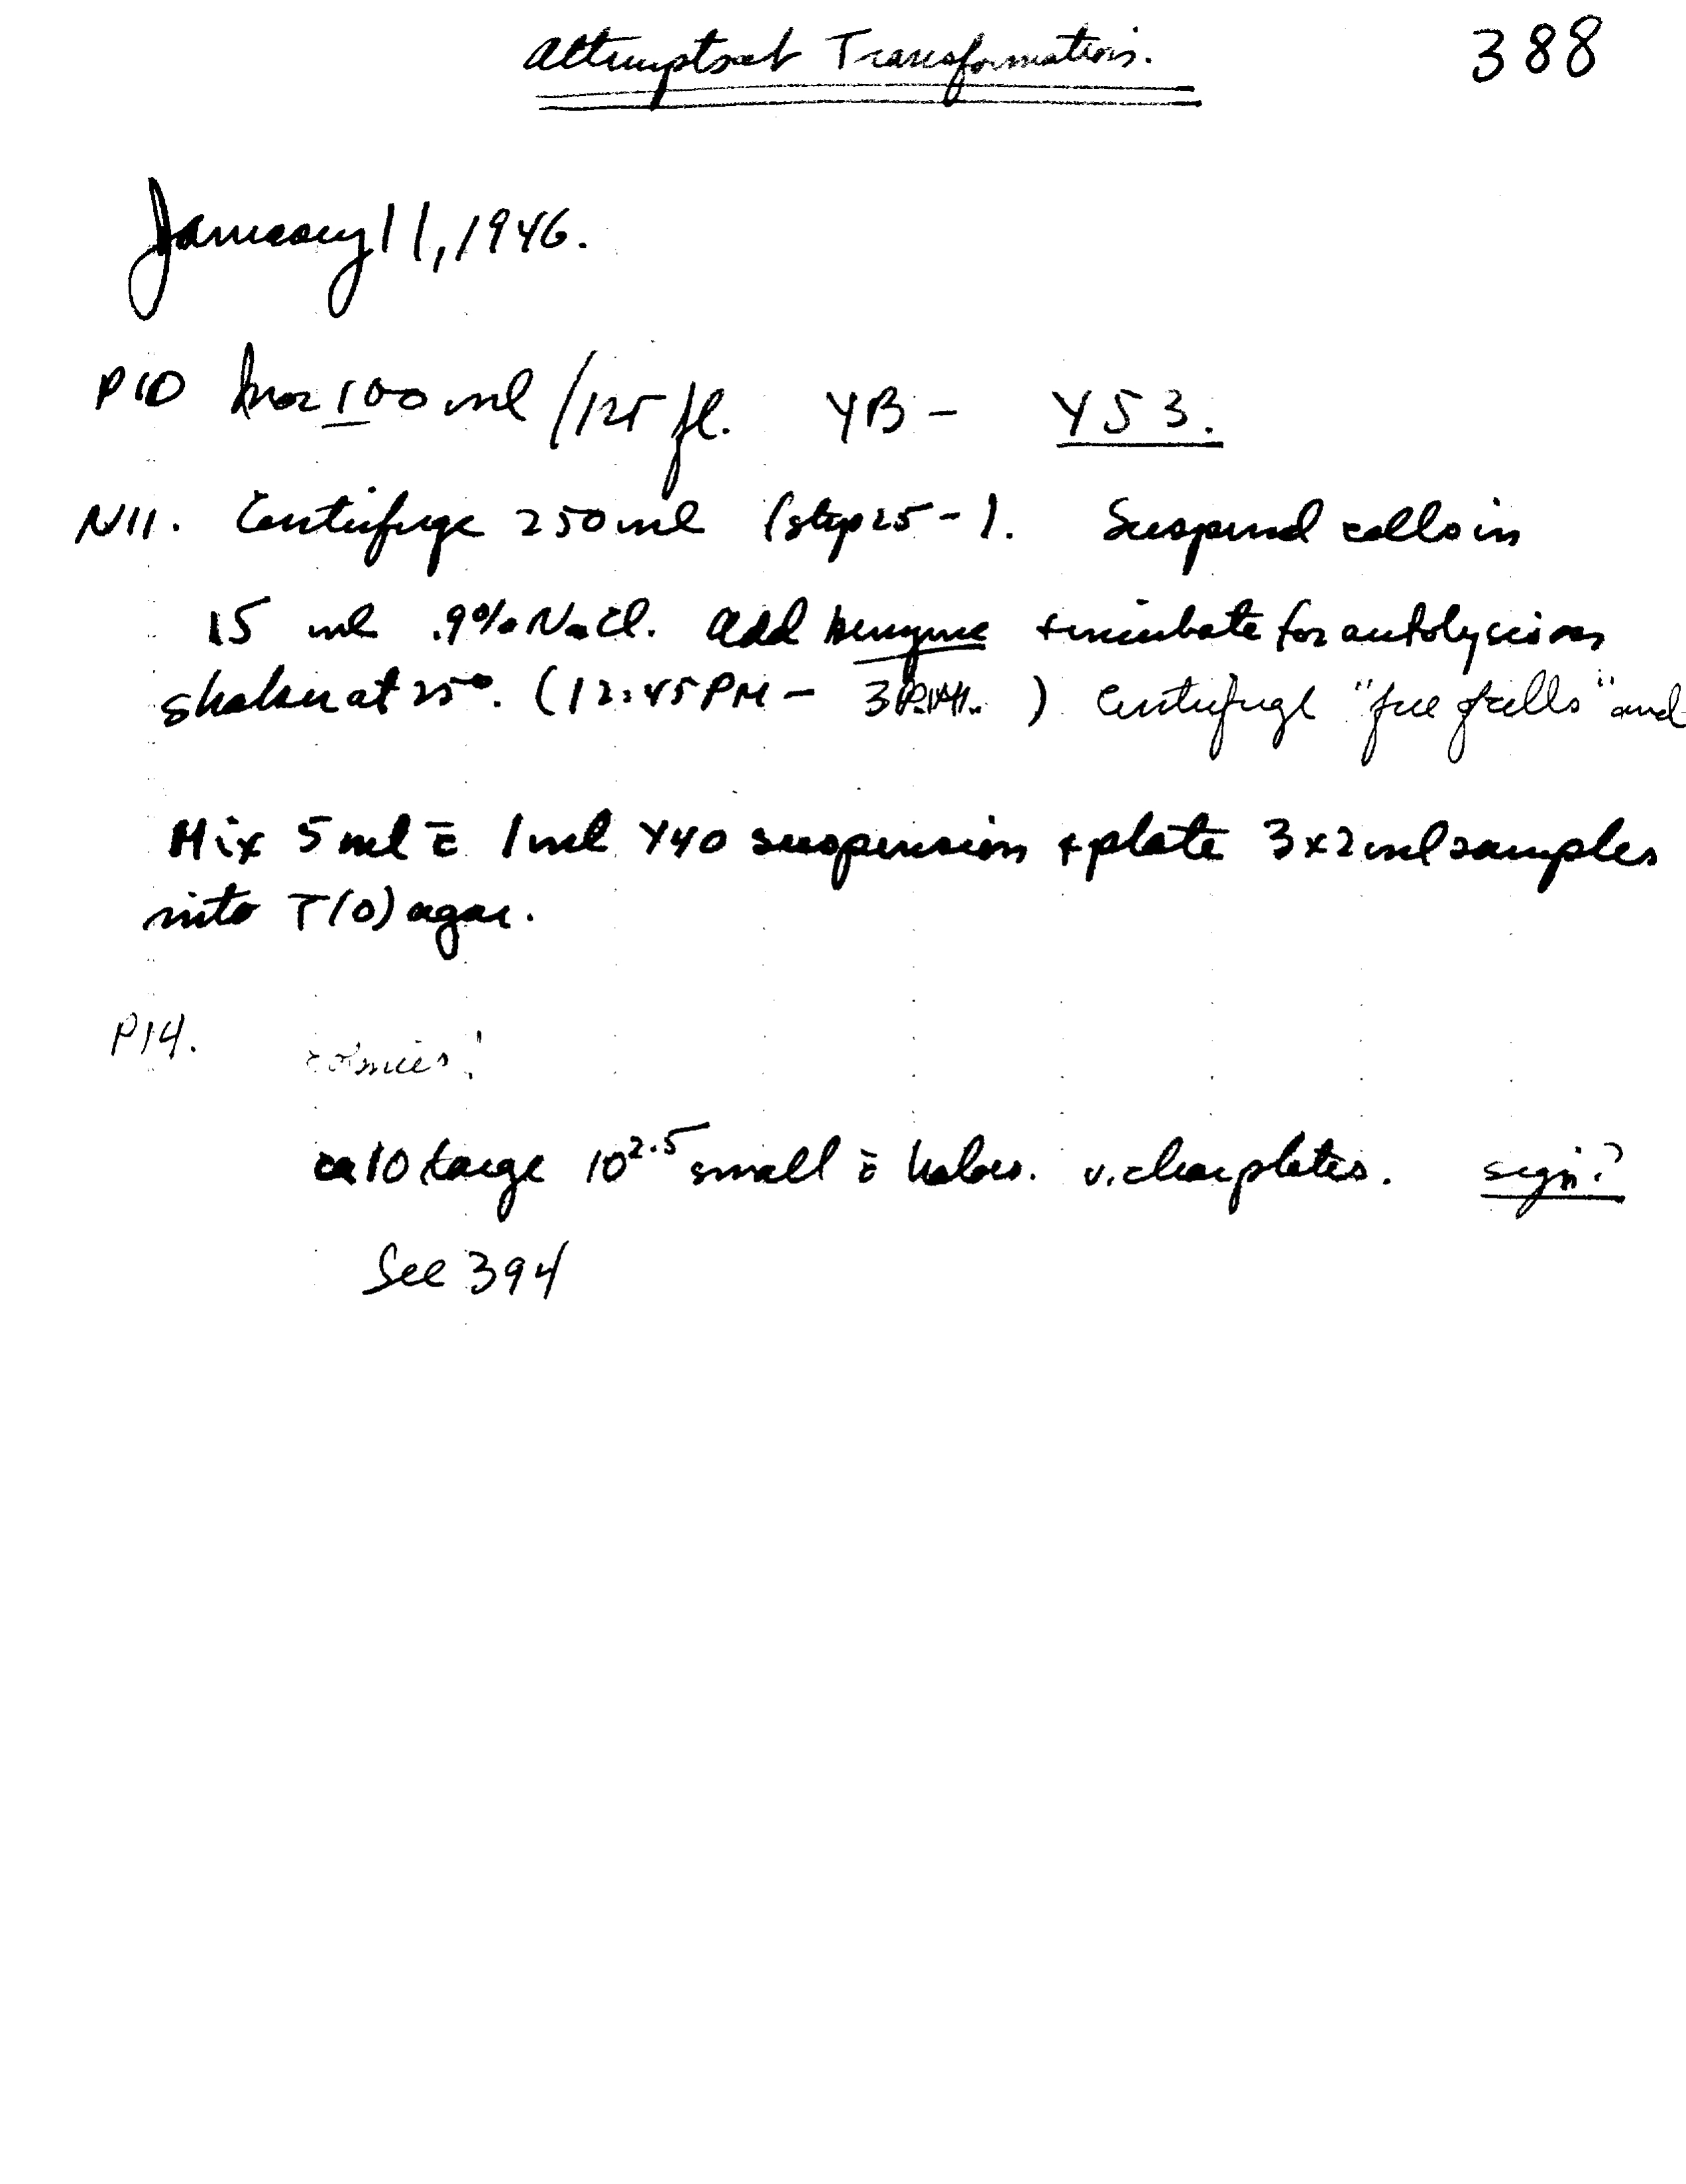 Attempts at Transformation.
388
January 11, 1946.
P10 Inoc 100 ml /125 fl. YB - Y53.
N11. Centrifuge 250 ml (step 25-). Suspend cells in
15 ml .9% NaCl. Add benzene + incubate for autolysis on
shaker at 25°. (12:45 PM - 3 P.M. ) Centrifuge "free of cells" and
Mix 5 ml c̄ 1 ml Y40 suspension + plate 3x2 ml samples
into T(0) agar.
P14. colonies!
ca 10 large 10^2.5 small c̄ halos. v. clear plates. sign?
See 394